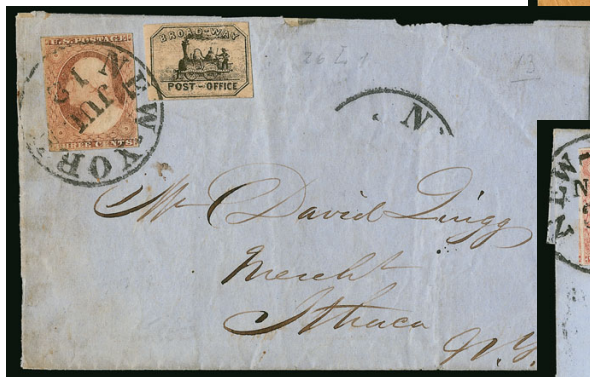 U.S. POSTAGE
THREE CENTS
NEW-YORK
JUL
BROAD-WAY
POST-OFFICE
26 L 1
13
N
Mr David Quigg
Mercht
Ithaca
N Y